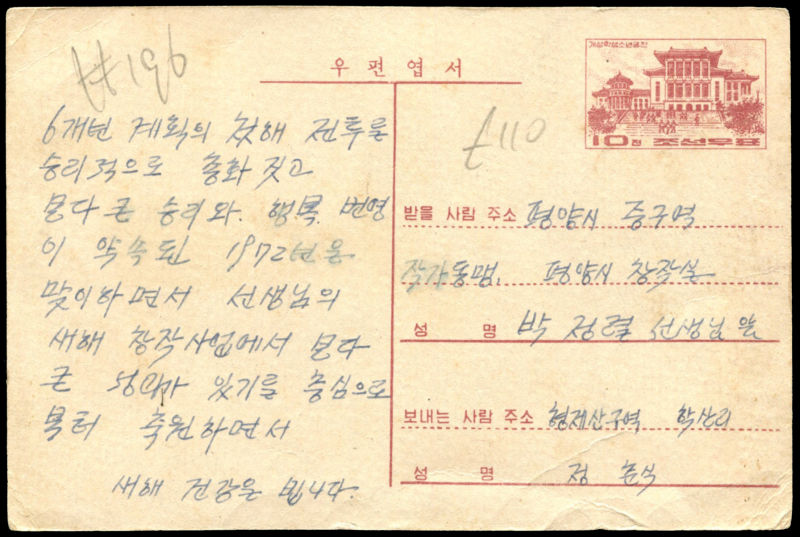 ##196
우 편 엽 서
개성학생소년궁전
10전 조선우표
£110
6개년 계획의 첫해 전투를
승리적으로 총화 짓고
보다 큰 승리와 행복, 번영
이 약속된 1972년을
맞이하면서 선생님의
새해 창작사업에서 보다
큰 성과가 있기를 충심으로
부터 축원하면서
새해 건강을 빕니다.
받을 사람 주소 평양시 중구역
작가동맹, 평양시 창작실
성 명 박 정렬 선생님 앞
보내는 사람 주소 형제산구역 학산리
성 명 정 춘식